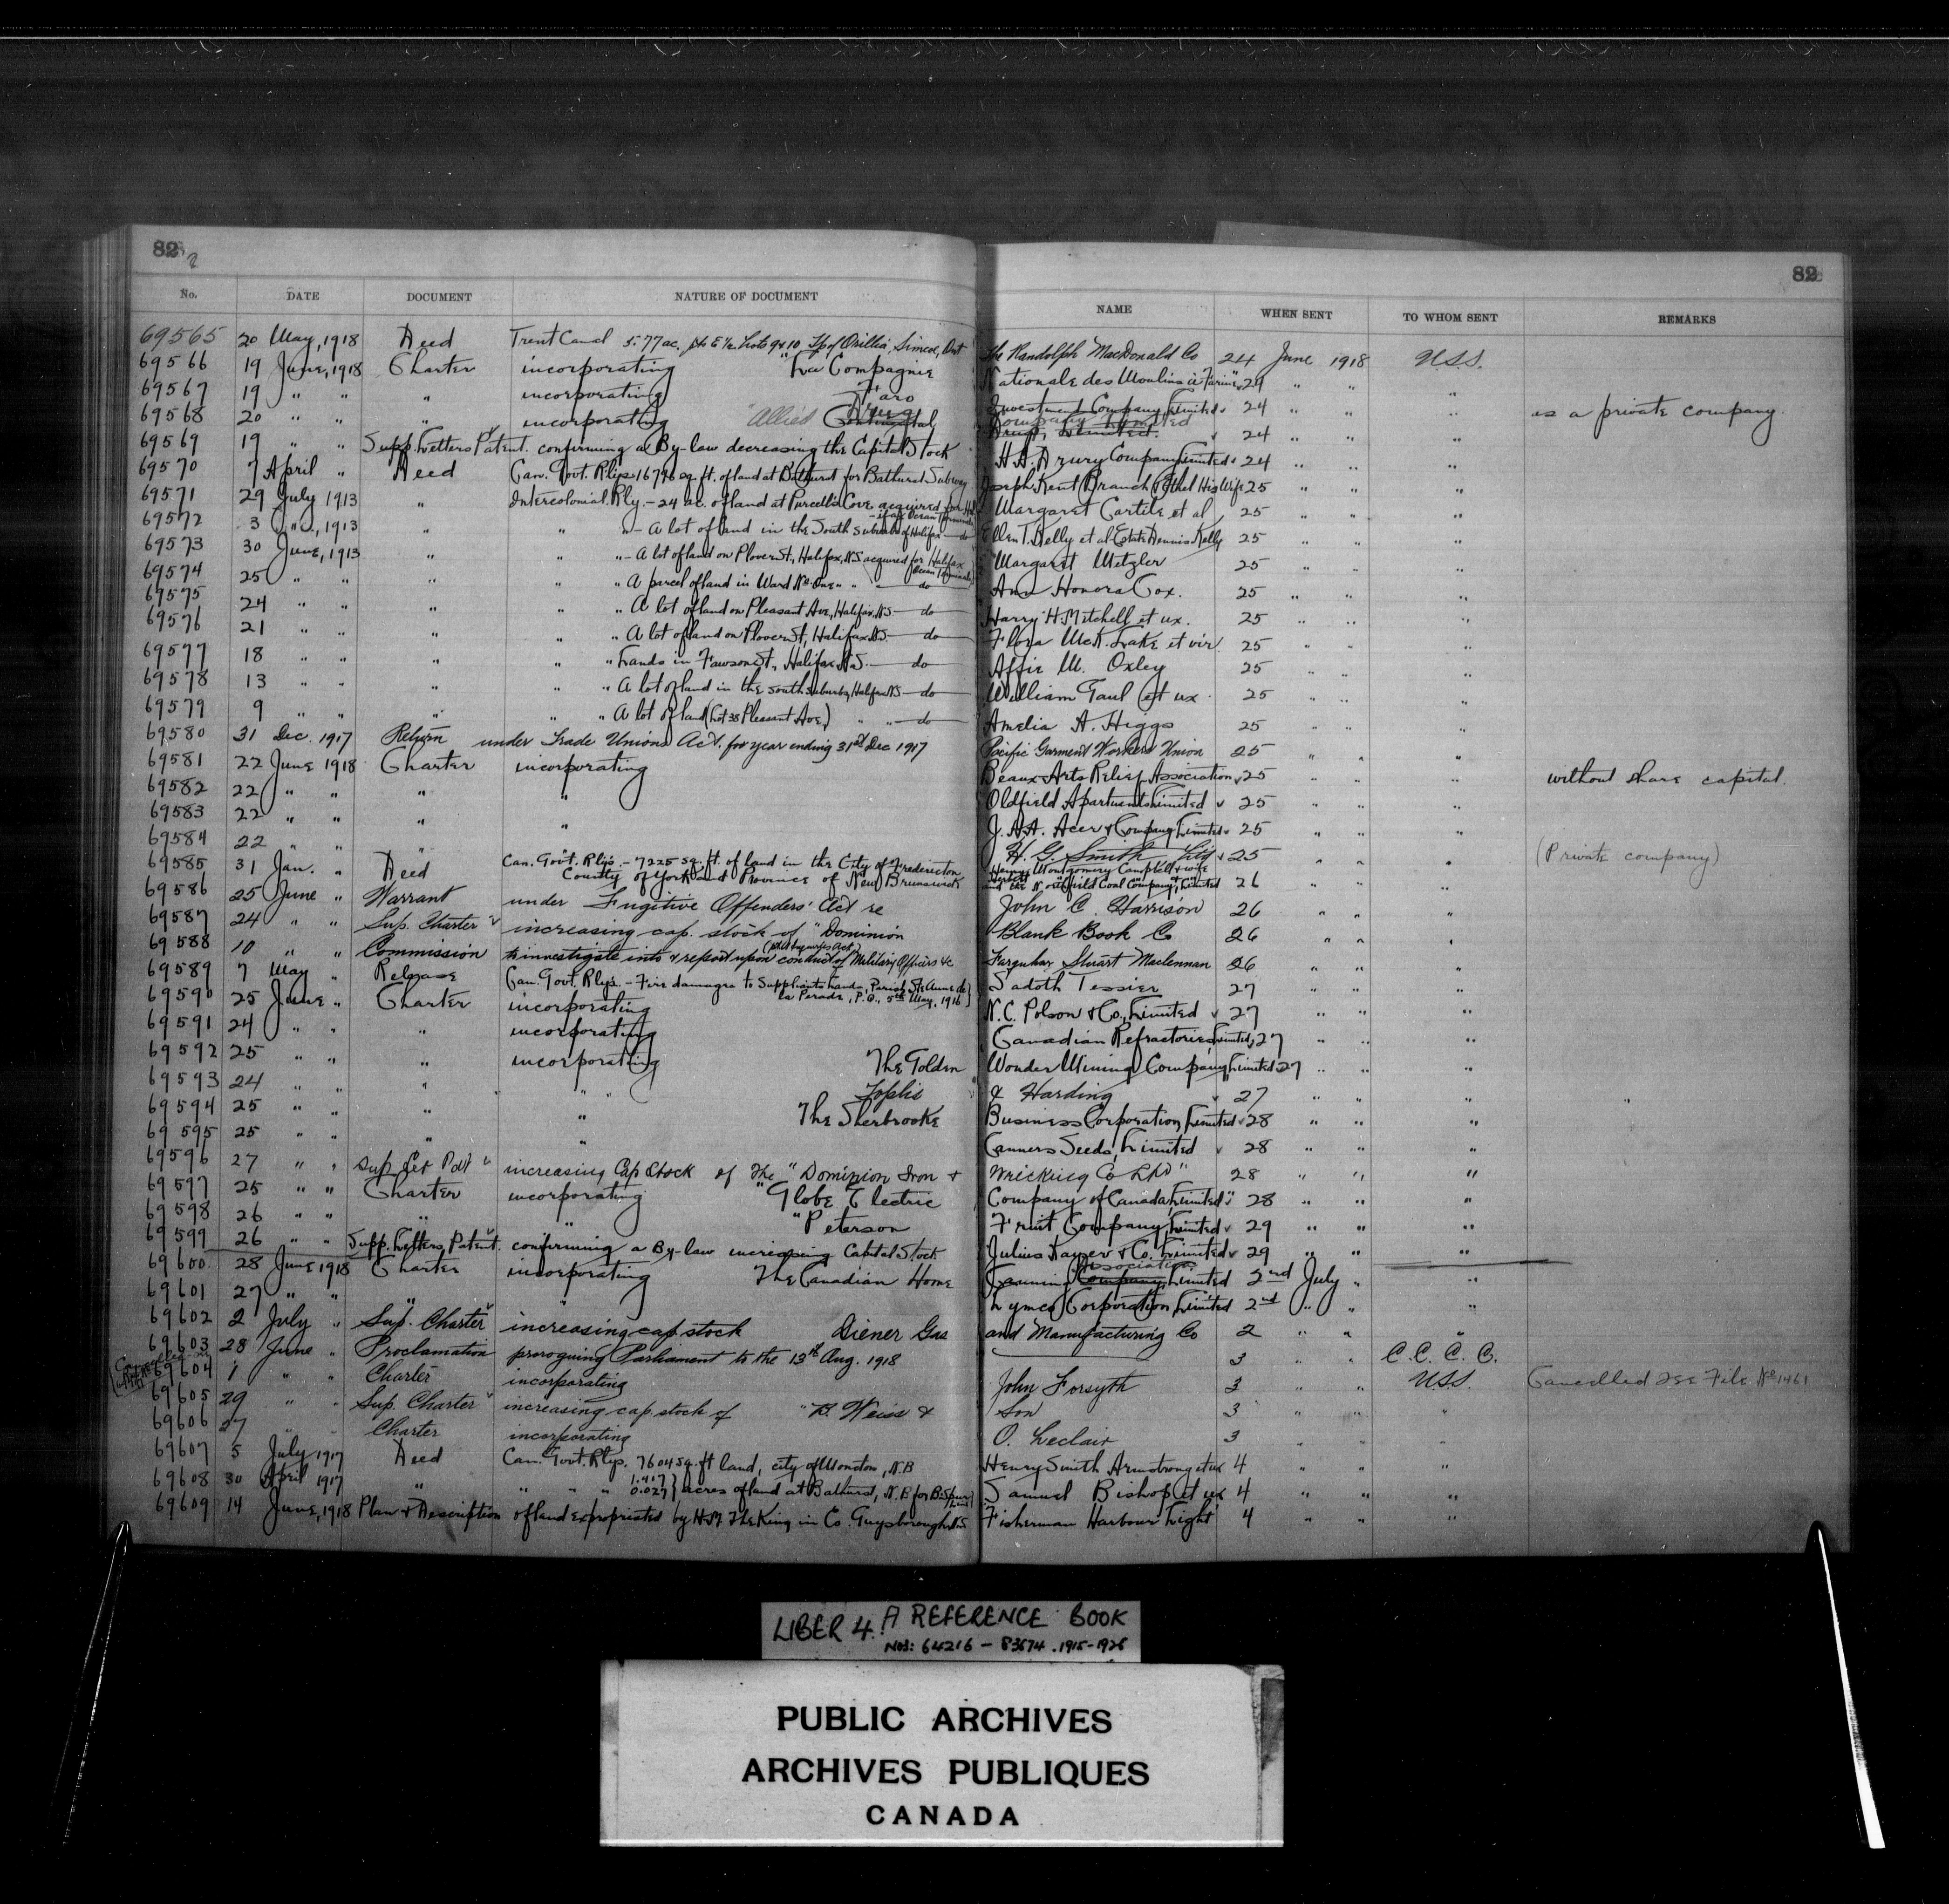 82
82
No. DATE DOCUMENT NATURE OF DOCUMENT NAME WHEN SENT TO WHOM SENT REMARKS
69565 20 May, 1918 Deed Trent Canal 5.77 ac. pts E½ Lots 9 & 10 Tp of Orillia, Simcoe, Ont The Randolph MacDonald Co 24 June 1918 U.S.S.
69566 19 June, 1918 Charter incorporating "La Compagnie Nationale des Moulins à Farine" 24 " " "
69567 19 " " " incorporating Faro Investment Company, Limited 24 " " " as a private company
69568 20 " " " incorporating "Allied Continental Drug Company Limited Drug, Limited. 24 " " "
69569 19 " " Supp. Letters Patent. confirming a By-law decreasing the Capital Stock H.A. Drury Company Limited 24 " " "
69570 7 April " Deed Can. Govt. Rlys. 16796 sq. ft. of land at Bathurst for Bathurst Subway Joseph Kent Branch & Ethel His Wife 25 " " "
69571 29 July 1913 " Intercolonial Rly. - 24 ac. of land at Purcell's Cove acquired for Margaret Cartile et al 25 " " "
69572 3 " 1913 " " " - A lot of land in the South suburbs of Halifax - do Ellen T. Kelly et al Estate Dennis Kelly 25 " " "
69573 30 June, 1913 " " " - A lot of land on Plover St, Halifax, N.S. acquired for Halifax Ocean Terminals Margaret Metzler 25 " " "
69574 25 " " " " " A parcel of land in Ward No. One " " - do - Ann Honora Cox. 25 " " "
69575 24 " " " " " A lot of land on Pleasant Ave, Halifax, N.S. - do - Harry H. Mitchell et ux. 25 " " "
69576 21 " " " " " A lot of land on Plover St, Halifax N.S. - do - Flora McK. Lake et vir. 25 " " "
69577 18 " " " " " Lands in Fawson St., Halifax N.S. - do - Affie M. Oxley 25 " " "
69578 13 " " " " " A lot of land in the south suburbs, Halifax N.S. - do - William Gaul et ux 25 " " "
69579 9 " " " " " A lot of land (Lot 38 Pleasant Ave.) " " - do - Amelia A. Higgs 25 " " "
69580 31 Dec. 1917 Return under Trade Unions Act. for year ending 31st Dec 1917 Pacific Garment Workers Union 25 " " "
69581 22 June 1918 Charter incorporating Beaux-Arts Relief Association 25 " " " without share capital.
69582 22 " " " " Oldfield Apartments Limited 25 " " "
69583 22 " " " " J. A. A. Acer & Company Limited 25 " " "
69584 22 " " " " H. G. Smith Ltd 25 " " " (Private company)
69585 31 Jan. " Deed Can. Govt. Rlys. - 7225 sq. ft. of land in the City of Fredericton, County of York and Province of New Brunswick Henry Montgomery Campbell & wife and the Northfield Coal Company, Limited 26 " " "
69586 25 June " Warrant under Fugitive Offenders' Act re John C. Harrison 26 " " "
69587 24 " " Sup. Charter increasing cap. stock of "Dominion Blank Book Co 26 " " "
69588 10 " " Commission to investigate into & report upon conduct of Military Officers &c Farquhar Stuart Maclennan 26 " " "
69589 7 May " Release Can. Govt. Rlys. - Fire damages to Suppliants lands, Parish Ste Anne de la Perade, P.Q., 5th May, 1916 Sadoth Tessier 27 " " "
69590 25 June " Charter incorporating N.C. Polson & Co., Limited 27 " " "
69591 24 " " " incorporating Canadian Refractories Limited 27 " " "
69592 25 " " " incorporating The Golden Wonder Mining Company Limited 27 " " "
69593 24 " " " " Toplis & Harding 27 " " "
69594 25 " " " " The Sherbrooke Business Corporation, Limited 28 " " "
69595 25 " " " " Canners Seeds, Limited 28 " " "
69596 27 " " Sup Let Pat increasing Cap Stock of The "Dominion Iron & Wrecking Co Ltd" 28 " " "
69597 25 " " Charter incorporating "Globe Electric Company of Canada, Limited" 28 " " "
69598 26 " " " " "Peterson Fruit Company, Limited 29 " " "
69599 26 " " Supp. Letters Patent. confirming a By-law increasing Capital Stock Julius Kayser & Co. Limited 29 " " "
69600 28 June 1918 Charter incorporating The Canadian Home Association Canning Company, Limited 2nd July " "
69601 27 " " " " Lymco Corporation Limited 2nd " " "
69602 2 July " Sup. Charter increasing cap. stock Diener Gas and Manufacturing Co 2 " " "
69603 28 June " Proclamation proroguing Parliament to the 13th Aug. 1918 3 " " C.C.C.C.
69604 1 " " Charter incorporating John Forsyth 3 " " U.S.S. Cancelled see File No 1461
69605 29 " " Sup. Charter increasing cap. stock of "B. Weiss & Son 3 " " "
69606 27 " " Charter incorporating O. Leclair 3 " " "
69607 5 July 1917 Deed Can. Govt. Rlys. 7604 sq. ft land, city of Moncton, N.B Henry Smith Armstrong et ux 4 " " "
69608 30 April 1917 " " " " 1.417 0.027 } acres of land at Bathurst, N.B for Samuel Bishop et ux 4 " " "
69609 14 June, 1918 Plan & Description of land expropriated by H.M. The King in Co. Guysborough N.S. Fisherman Harbour Light 4 " " "
LIBER 4. A REFERENCE BOOK
NOS: 64216 - 83674 . 1915-1928
PUBLIC ARCHIVES
ARCHIVES PUBLIQUES
CANADA